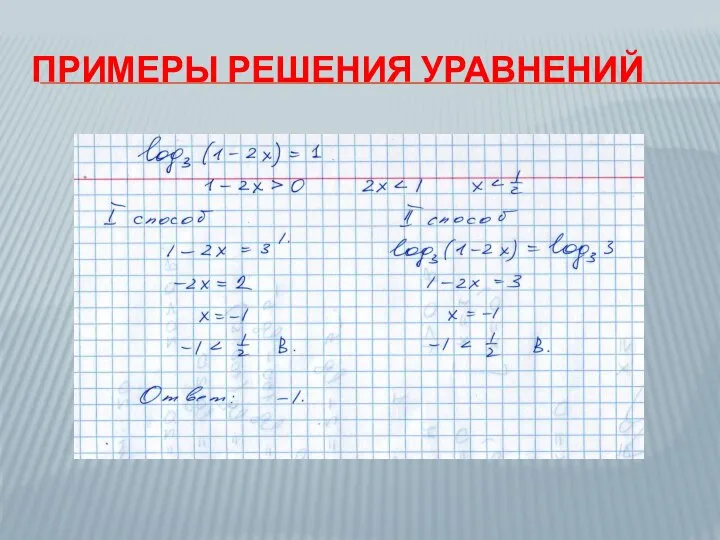 ПРИМЕРЫ РЕШЕНИЯ УРАВНЕНИЙ
log₃ (1 - 2x) = 1
1 - 2x > 0 2x < 1 x < 1/2
I способ
1 - 2x = 3¹.
-2x = 2
x = -1
-1 < 1/2 В.
II способ
log₃ (1 - 2x) = log₃ 3
1 - 2x = 3
x = -1
-1 < 1/2 В.
Ответ: -1.